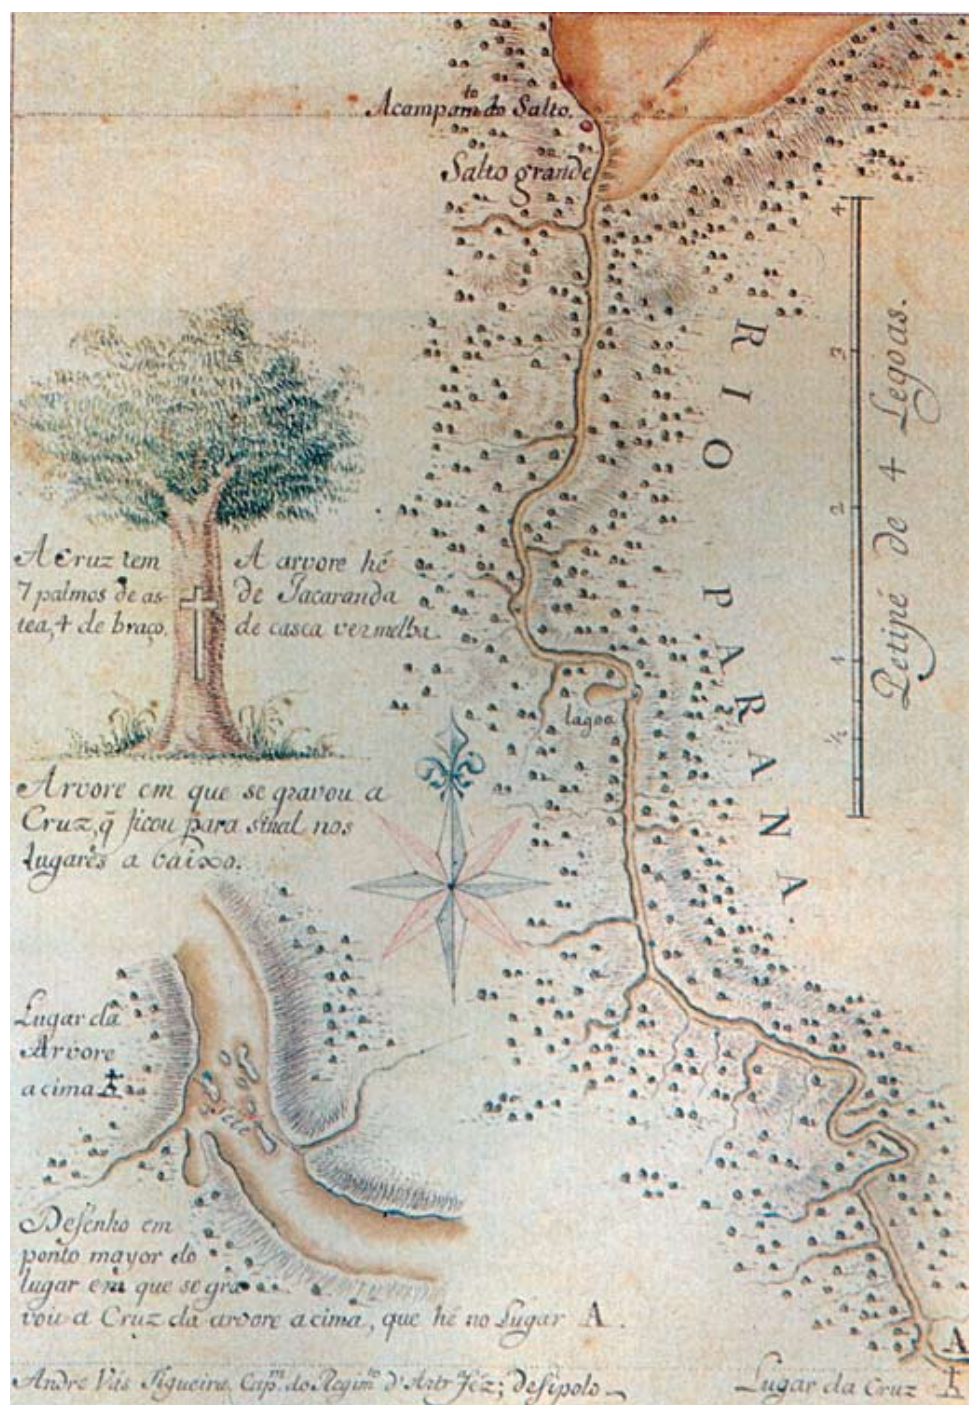 Acampam.to do Salto.
Salto grande
RIO PARANA.
4
3
2
1
½
Petipé de 4 Legoas.
A Cruz tem
7 palmos de as-
tea, 4 de braço.
A arvore hé
de Jacaranda
de casca vermelha
lagoa
Arvore em que se gravou a
Cruz, q̃ ficou para sinal nos
Lugares a baixo.
Lugar da
Arvore
acima
Desenho em
ponto mayor do
lugar em que se gra
vou a Cruz da arvore acima, que hé no Lugar A.
A
Lugar da Cruz
Andre Vás Figueira Cap.m do Regim.to d'Art.